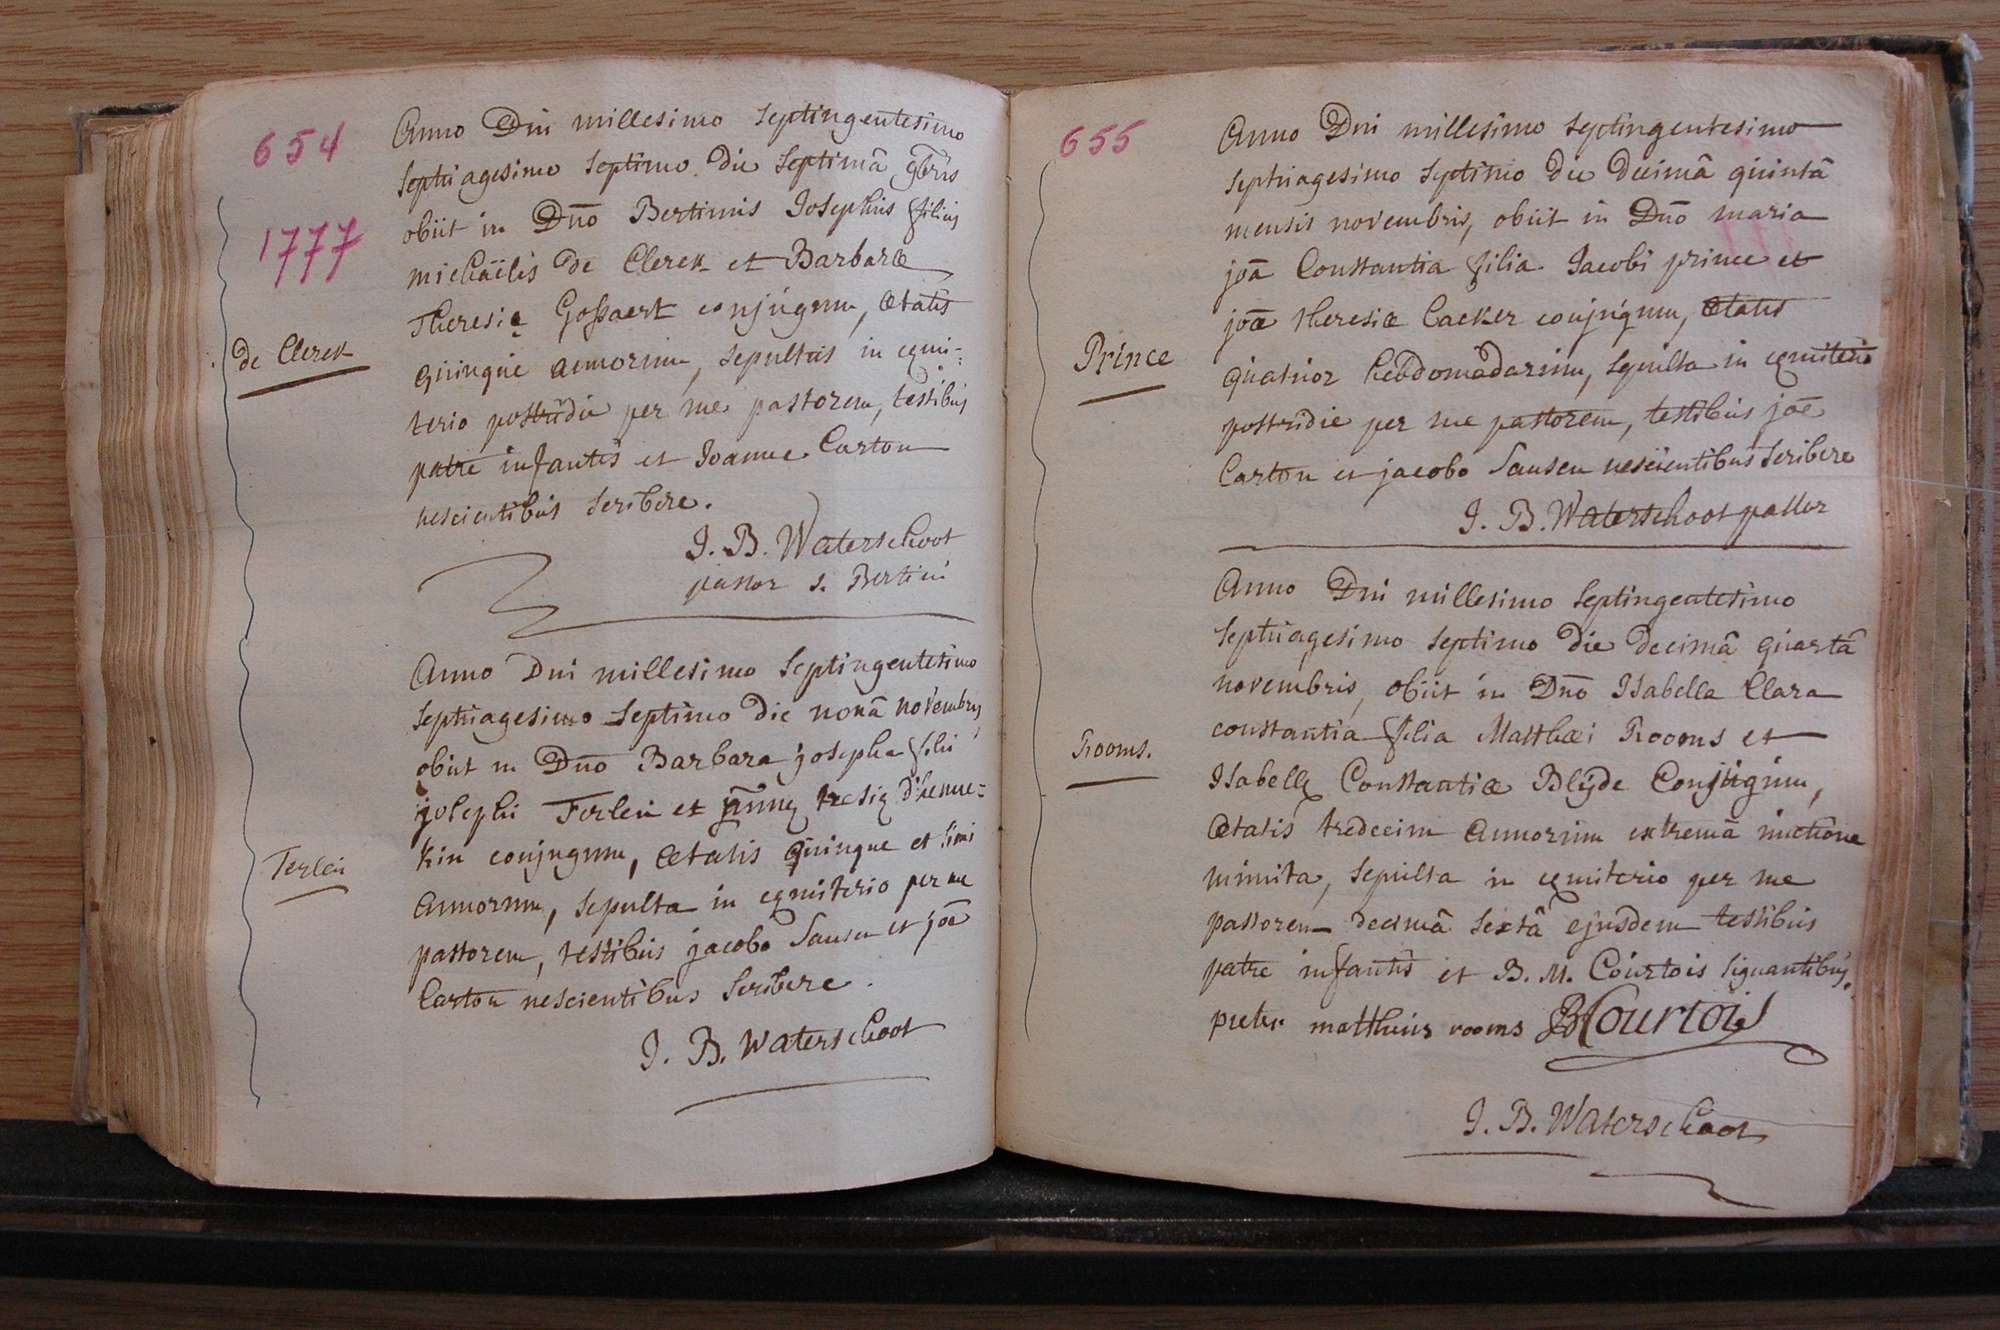 654
1777
Anno Dni millesimo septingentesimo
septuagesimo septimo die septimâ 9bris
obiit in Dnō Bertinus Josephus filius
michaëlis de Clerck et Barbaræ
Theresiæ Gossaert conjugum, ætatis
quinque annorum, sepultus in cœmi-
de Clerck
terio postridie per me pastorem, testibus
patre infantis et Joanne Carton
nescientibus scribere.
J. B. Waterschoot
pastor s. Bertini
Anno Dni millesimo septingentesimo
septuagesimo septimo die nonâ novembris
obiit in Dnō Barbara josepha filia
josephi Terlein et
kin conjugum, ætatis quinque et
Terlein
annorum, sepulta in cœmiterio per me
pastorem, testibus jacobo Sansen et joē
Carton nescientibus scribere.
J. B. Waterschoot
655
Anno Dni millesimo septingentesimo
septuagesimo septimo die decimâ quintâ
mensis novembris, obiit in Dnō maria
joā Constantia filia Jacobi prince et
joæ theresiæ Cacker conjugum, ætatis
Prince
quatuor hebdomadarum, sepulta in cœmiterio
postridie per me pastorem, testibus joē
Carton et jacobo Sansen nescientibus scribere
J. B. Waterschoot pastor
Anno Dni millesimo septingentesimo
septuagesimo septimo die decimâ quartâ
novembris, obiit in Dnō Isabella Clara
constantia filia Matthæi Rooms et
Rooms.
Isabellæ Constantiæ Blijde Conjugum,
ætatis tredecim annorum extremâ unctione
munita, sepulta in cœmiterio per me
pastorem decimâ sextâ ejusdem testibus
patre infantis et B. M. Courtois signantibus.
pieter mattheus rooms BMCourtois
J. B. Waterschoot